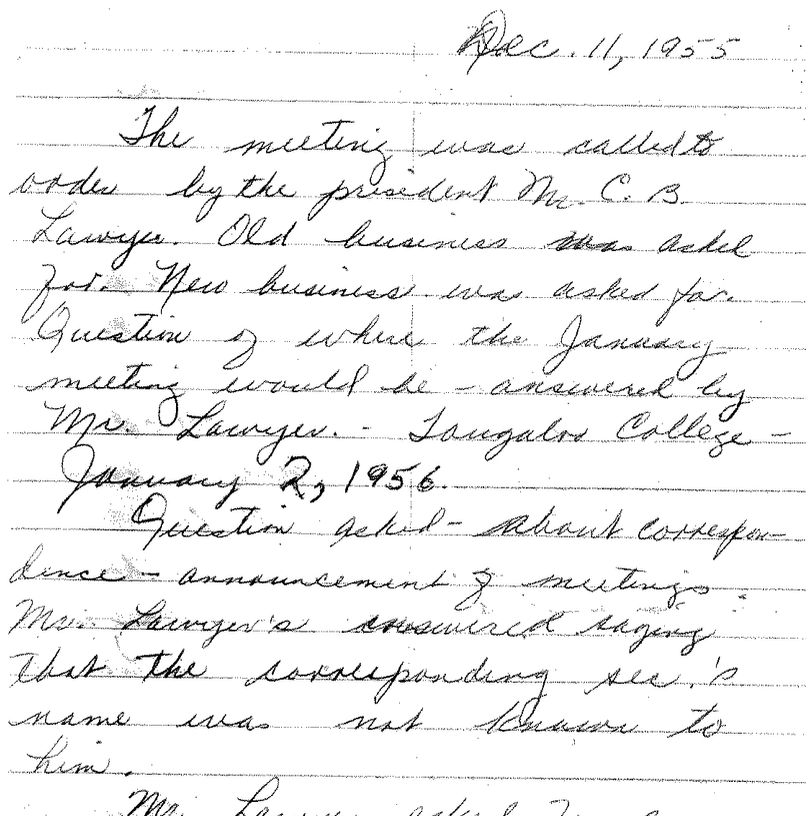 Dec. 11, 1955
The meeting was called to
order by the president Mr. C. B.
Lawyer. Old business was asked
for. New business was asked for.
Question of where the January
meeting would be - answered by
Mr. Lawyer. - Tougaloo College -
January 2, 1956.
Question asked - about correspon-
dence - announcement of meetings.
Mr. Lawyer's answered saying
that the corresponding sec.'s
name was not known to
him.
Mr. Lawyer asked